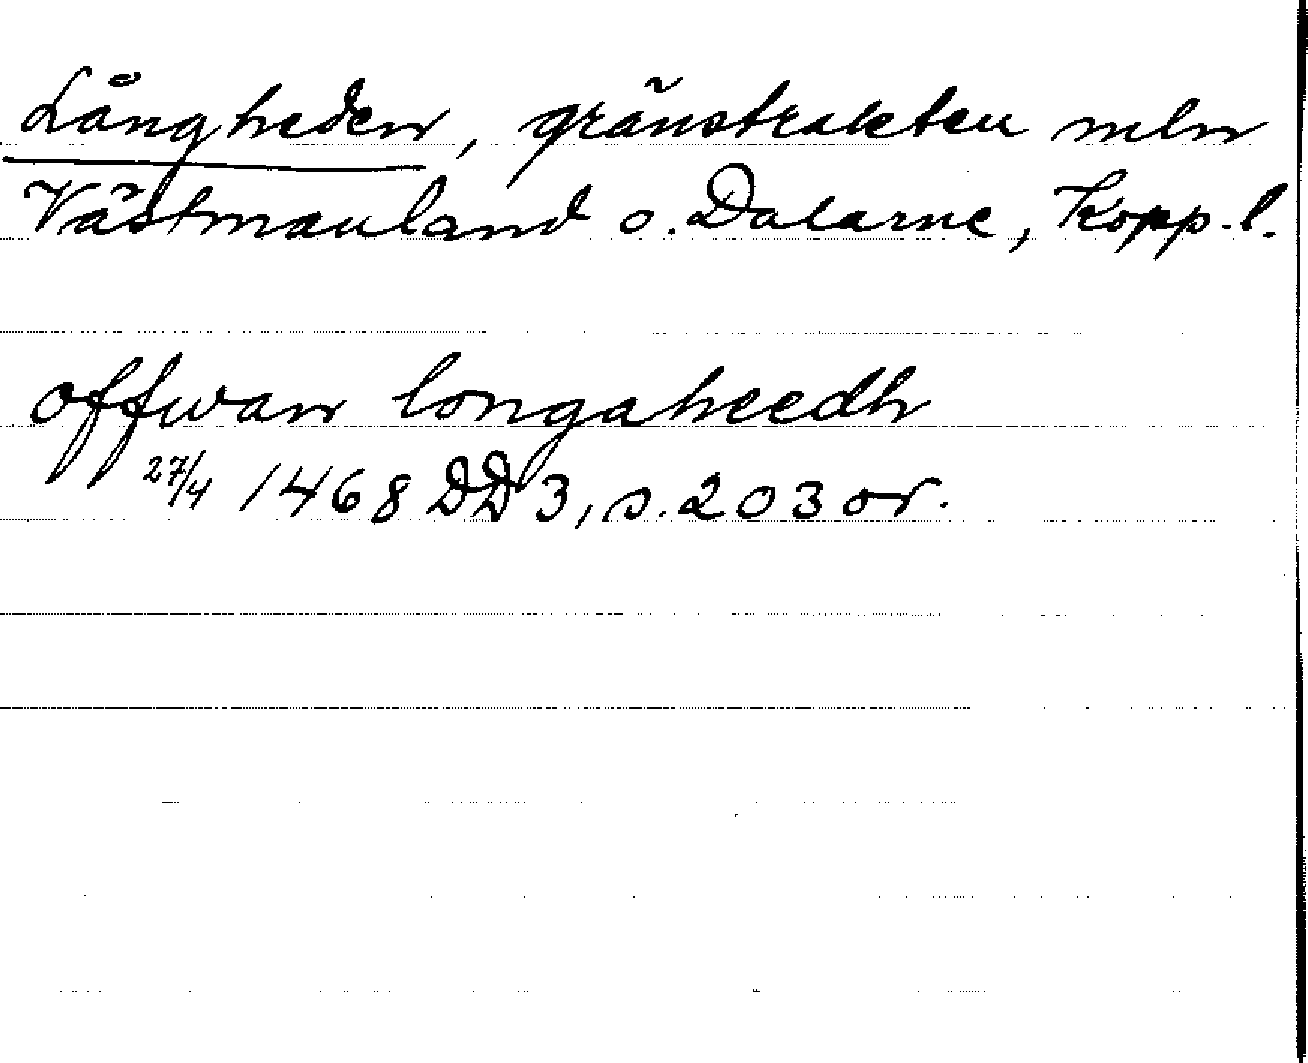 Långheden, gränstrakten mln
Västmanland o. Dalarne, Kopp. l.
offwan longaheedh
27/4 1468 DD 3, s. 203 or.